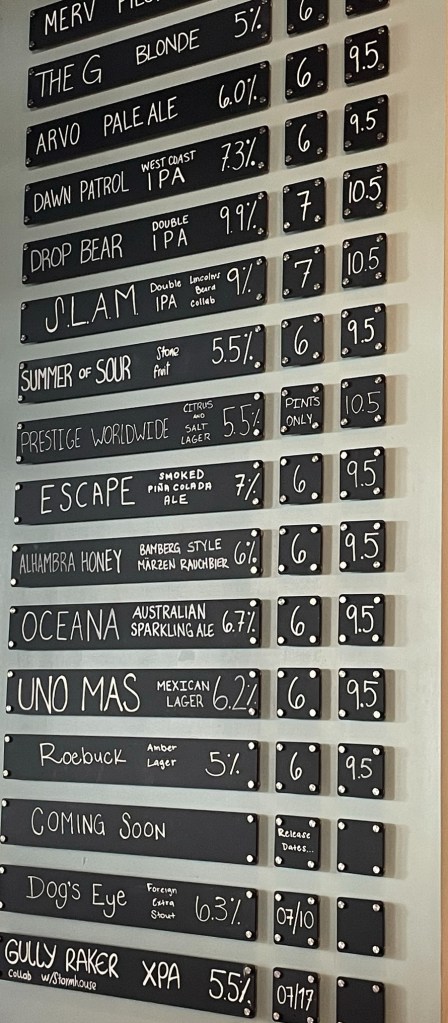 MERV 6
THE G BLONDE 5% 6 9.5
ARVO PALE ALE 6.0% 6 9.5
DAWN PATROL WEST COAST IPA 7.3% 7 10.5
DROP BEAR DOUBLE IPA 9.9% 7 10.5
S.L.A.M. Double IPA Lincolns Beard Collab 9% 6 9.5
SUMMER OF SOUR Stone fruit 5.5% PINTS ONLY 10.5
PRESTIGE WORLDWIDE CITRUS AND SALT LAGER 5.5% 6 9.5
ESCAPE SMOKED PIÑA COLADA ALE 7% 6 9.5
ALHAMBRA HONEY BAMBERG STYLE MÄRZEN RAUCHBIER 6% 6 9.5
OCEANA AUSTRALIAN SPARKLING ALE 6.7% 6 9.5
UNO MAS MEXICAN LAGER 6.2% 6 9.5
Roebuck Amber Lager 5% 6 9.5
COMING SOON Release Dates...
Dog's Eye Foreign Extra Stout 6.3% 07/10
GULLY RAKER Collab w/Stormhouse XPA 5.5% 07/17